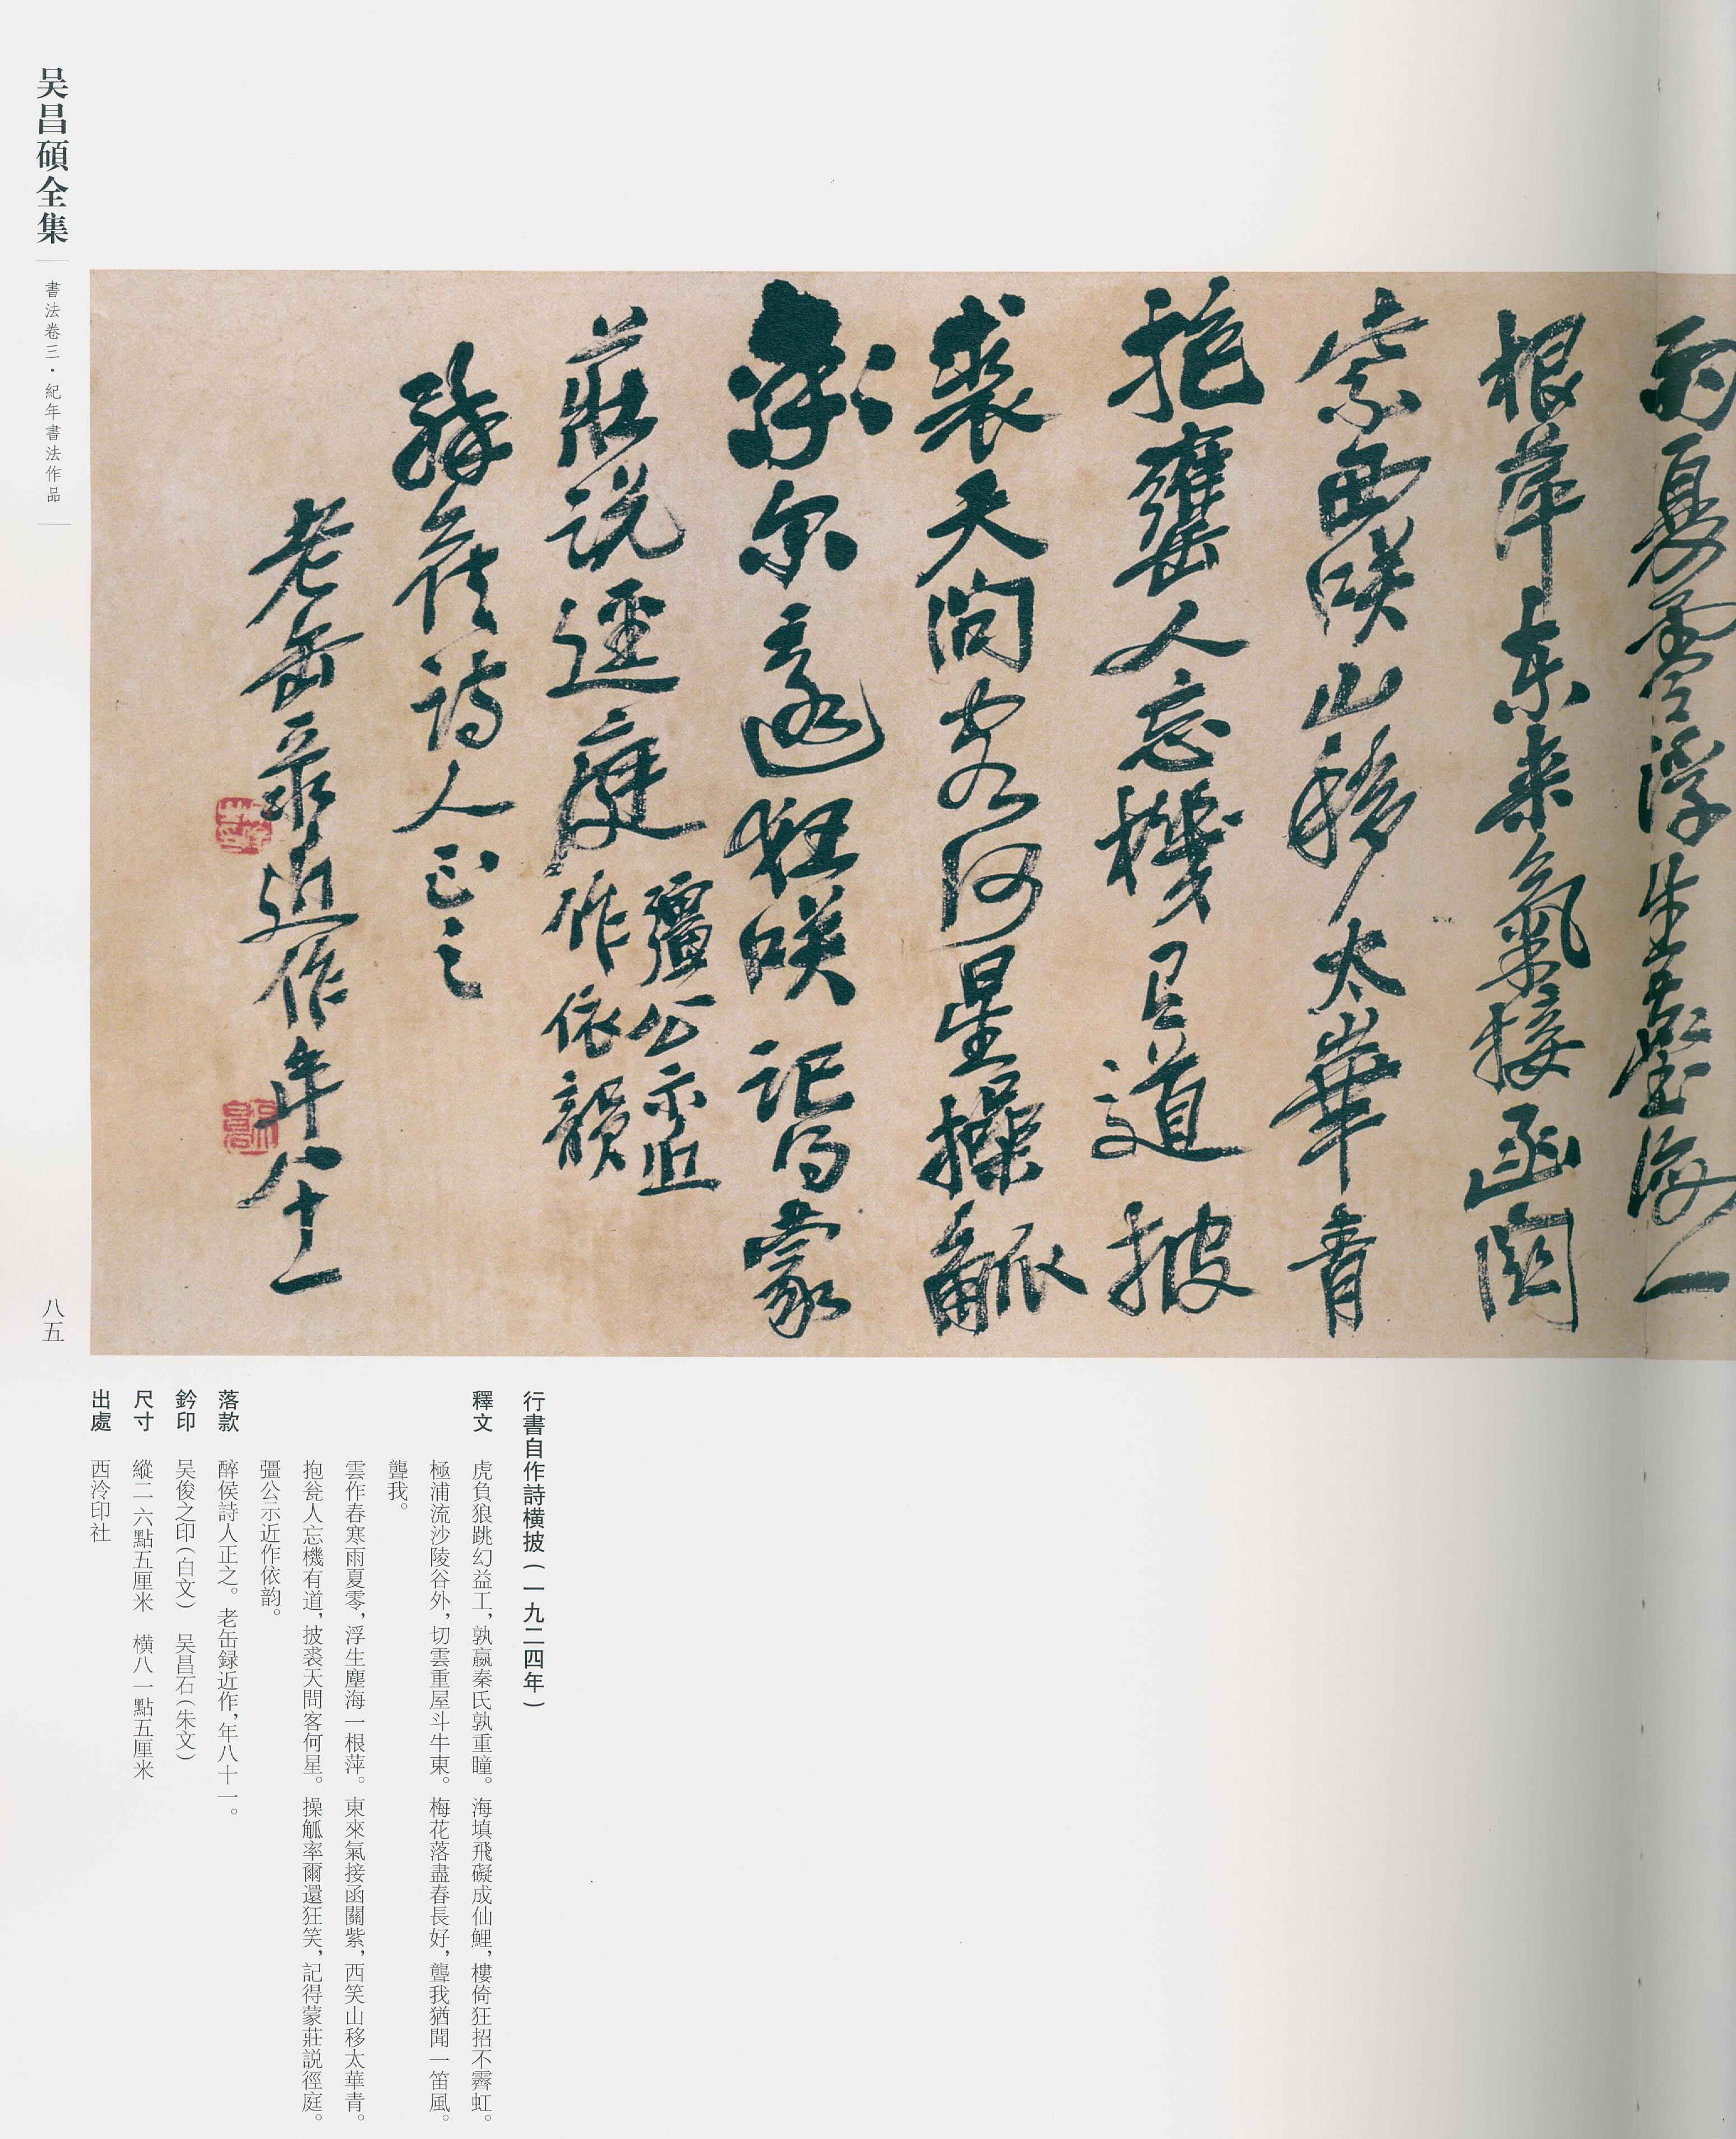 雨夏零浮生塵海一
根萍東來氣接函關
紫西咲山移太華青
抱甕人忘機有道披
裘天問客何星操觚
率尔還狂咲記得蒙
莊説逕庭
彊公示近
作依韻
醉侯詩人正之
老缶录近作年八十一
吴昌碩全集
書法卷三·紀年書法作品
八五
行書自作詩横披(一九二四年)
釋文 虎負狼跳幻益工,孰嬴秦氏孰重瞳。海填飛礙成仙鯉,樓倚狂招不霽虹。
極浦流沙陵谷外,切雲重屋斗牛東。梅花落盡春長好,聾我猶聞一笛風。
聾我。
雲作春寒雨夏零,浮生塵海一根萍。東來氣接函關紫,西笑山移太華青。
抱瓮人忘機有道,披裘天問客何星。操觚率爾還狂笑,記得蒙莊説徑庭。
彊公示近作依韵。
落款 醉侯詩人正之。老缶録近作,年八十一。
鈐印 吴俊之印(白文) 吴昌石(朱文)
尺寸 縱二六點五厘米 横八一點五厘米
出處 西泠印社